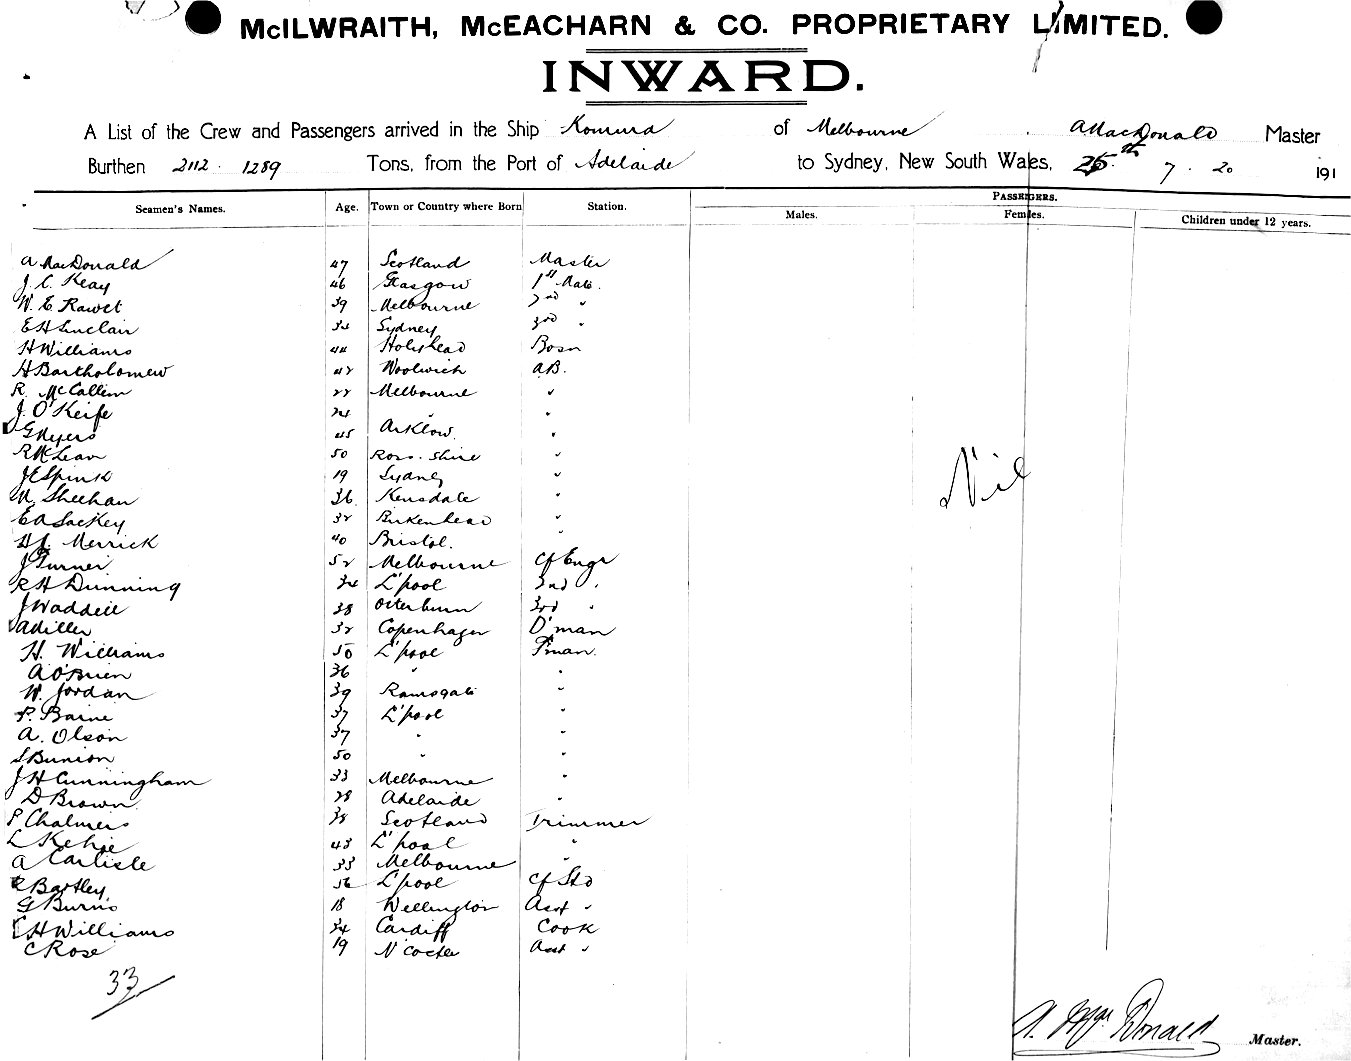 McILWRAITH, McEACHARN & CO. PROPRIETARY LIMITED.
INWARD.
A List of the Crew and Passengers arrived in the Ship Komura of Melbourne A MacDonald Master
Burthen 2112 . 1289 Tons, from the Port of Adelaide to Sydney, New South Wales, 25th 7 . 20 191
PASSENGERS.
Seamen's Names. Age. Town or Country where Born Station. Males. Females. Children under 12 years.
A MacDonald 47 Scotland Master
J. C. Keay 46 Glasgow 1st Mate.
W. E. Rawet 39 Melbourne 2nd "
E H Sinclair Sydney 3rd "
H Williams 44 Holyhead Bosn
H Bartholomew 42 Woolwich A.B.
R. McCallem 22 Melbourne "
J. O'Keife 24 " "
G Myers 45 Arklow. "
R McLean 50 Ross-shire "
J E Spink 19 Sydney "
M. Sheehan 36 "
E A Lackey 32 Birkenhead "
H J. Merrick 40 Bristol. "
J Turner 52 Melbourne Cf Engr
R H Dunning 34 L'pool 2nd "
J Waddell 38 Otterburn 3rd "
A Diller 32 Copenhagen D'man
H. Williams 50 L'pool F'man.
A O'Brien 36 " "
W. Jordan 39 Ramsgate "
P. Barne 37 L'pool "
A. Olson 37 " "
S Bunion 50 " "
J H Cunningham 33 Melbourne "
D Brown 28 Adelaide "
P Chalmers 38 Scotland Trimmer
L Kehoe 43 L'pool "
A Carlisle 33 Melbourne "
R Bartley 56 L'pool Cf Std
G Burns 18 Wellington Asst "
C H Williams 34 Cardiff Cook
C Rose 19 Asst "
Nil
33
A. MacDonald Master.